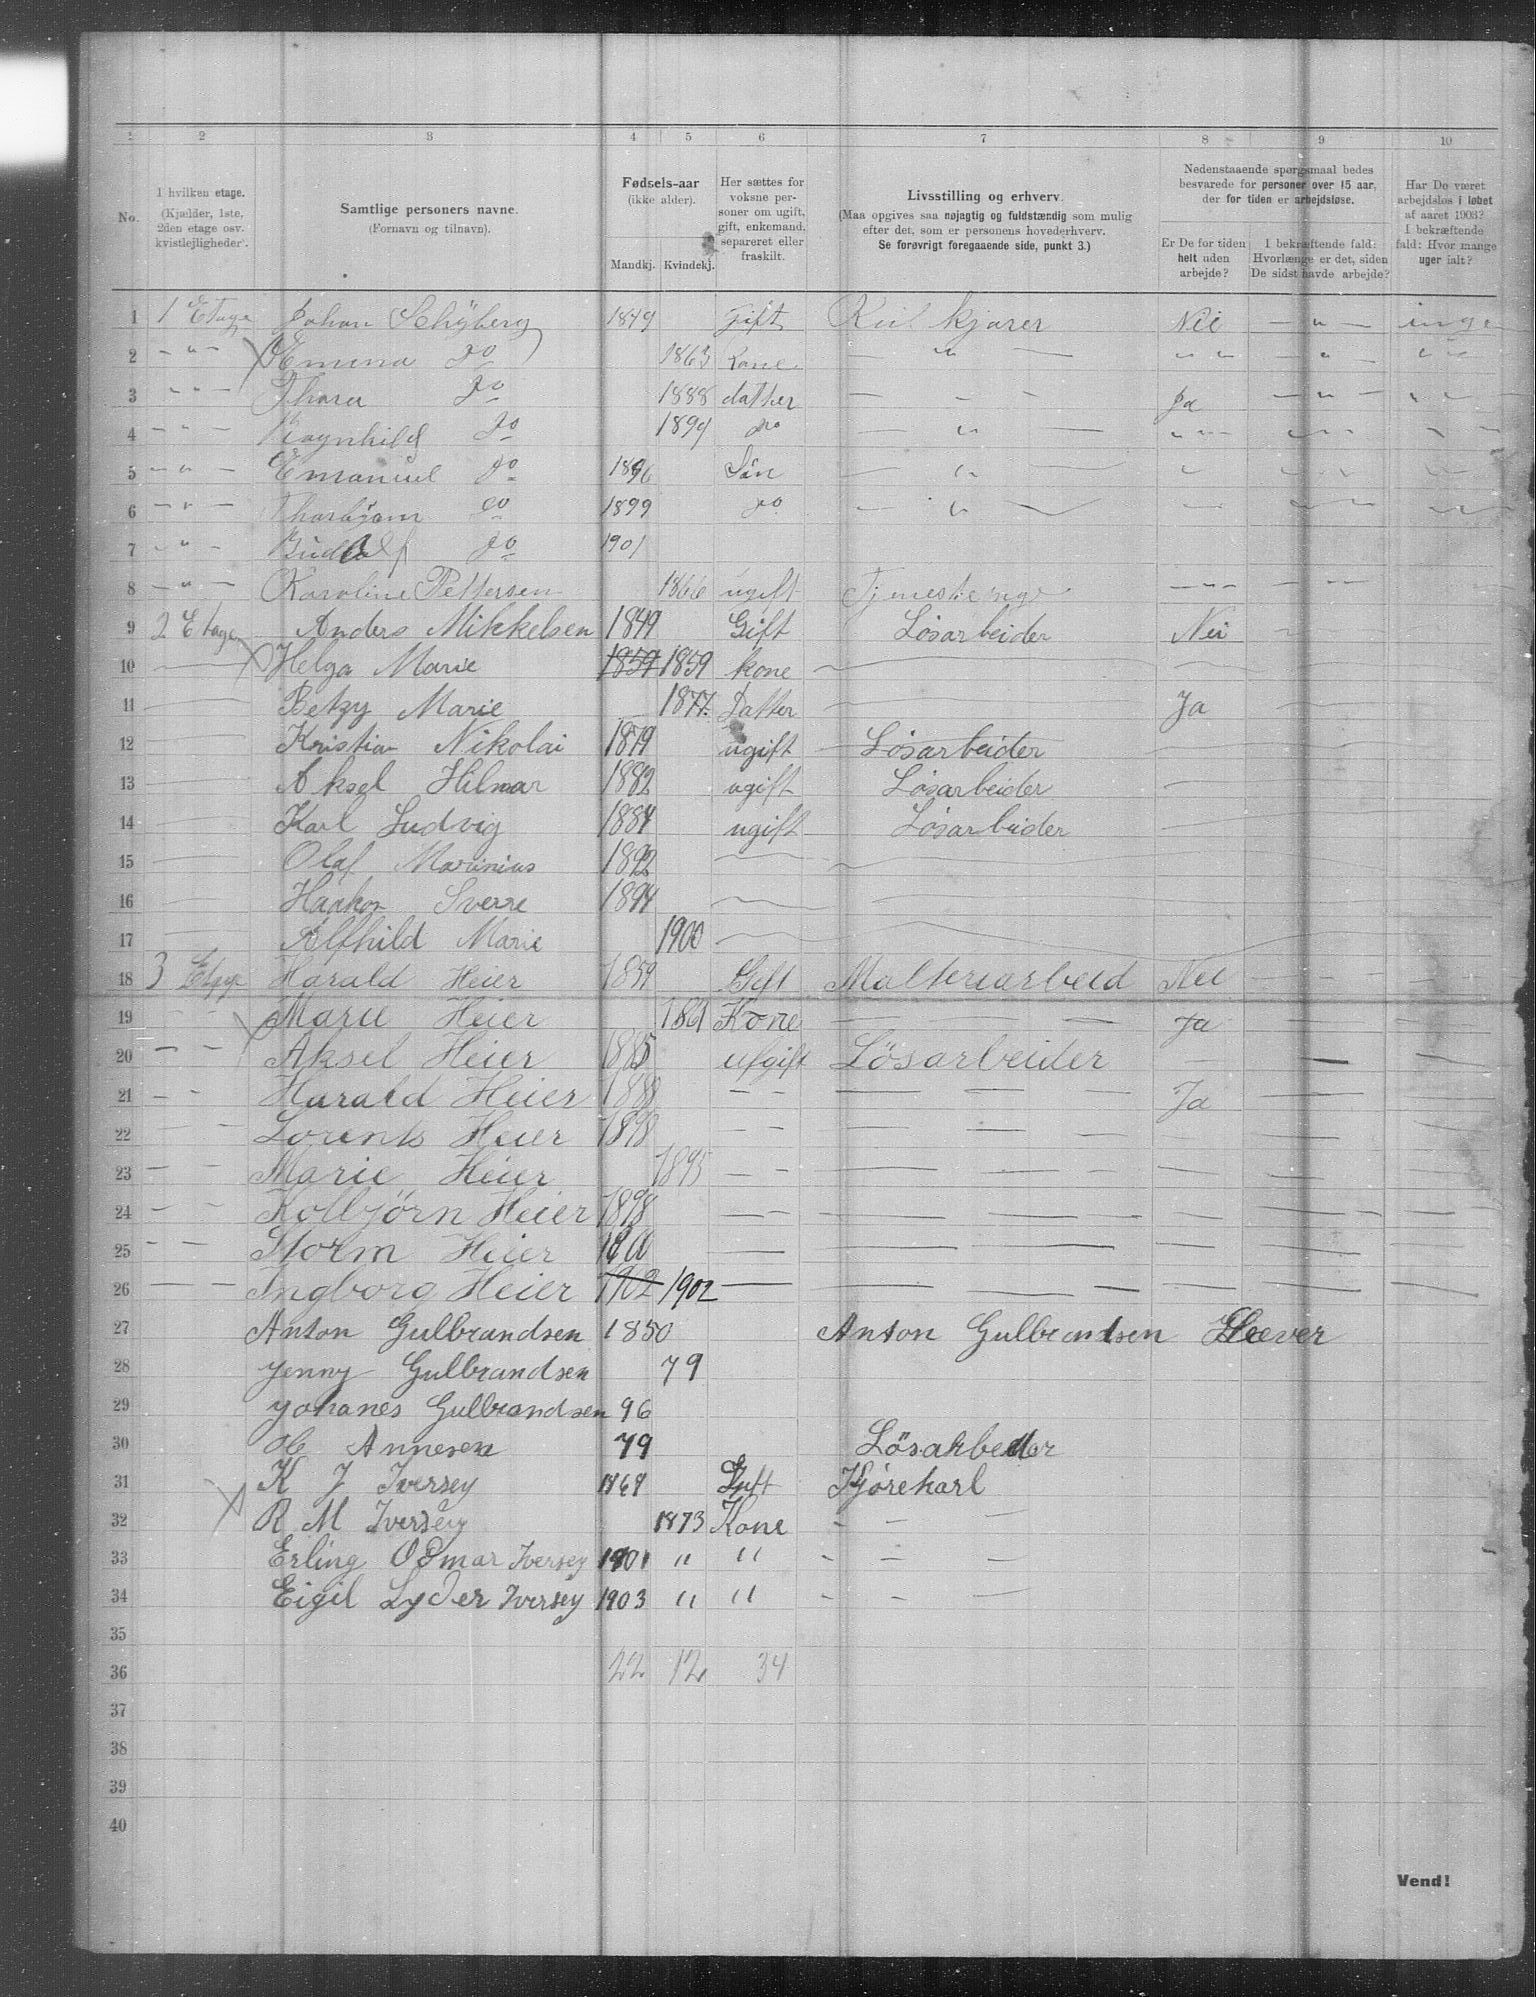 1 2 3 4 5 6 7 8 9 10
No.
I hvilken etage.
(Kjælder, 1ste,
2den etage osv.
kvistlejligheder).
Samtlige personers navne.
(Fornavn og tilnavn).
Fødsels-aar
(ikke alder).
Mandkj. Kvindekj.
Her sættes for
voksne per-
soner om ugift,
gift, enkemand,
separeret eller
fraskilt.
Livsstilling og erhverv.
(Maa opgives saa nøjagtig og fuldstændig som mulig
efter det, som er personens hovederhverv.
Se forøvrigt foregaaende side, punkt 3.)
Nedenstaaende spørgsmaal bedes
besvarede for personer over 15 aar,
der for tiden er arbejdsløse.
Er De for tiden
helt uden
arbejde?
I bekræftende fald:
Hvorlænge er det, siden
De sidst havde arbejde?
Har De været
arbejdsløs i løbet
af aaret 1903?
I bekræftende
fald: Hvor mange
uger ialt?
1 1 Etage Johan Schyberg 1849 Gift kjører Nei — " — inge
2 — " — Emma do 1863 Kone — " — " " — " —
3 — " — Thora do 1888 datter — - - Ja — " —
4 — " — Ragnhild do 1894 do — " —
5 — " — Emanuel do 1896 Sön — " —
6 — " — Thorbjørn do 1899 do — " —
7 — " — do 1901
8 — " — Karoline Pettersen 1866 ugift Tjenestepige — — —
9 2 Etage Anders Mikkelsen 1849 Gift Løsarbeider Nei —
10 — Helga Marie 1859 1859 kone —
11 — Betzy Marie 1877. Datter — Ja —
12 — Kristian Nikolai 1879 ugift Løsarbeider —
13 — Aksel Hilmar 1882 ugift Løsarbeider —
14 — Karl Ludvig 1884 ugift Løsarbeider —
15 — Olaf Marinius 1892 —
16 — Haakon Sverre 1894 —
17 — Alfhild Marie 1900 —
18 3 Etage Harald Heier 1859 Gift Malteriarbeid Nei —
19 - - Marie Heier 1861 Kone — — — Ja —
20 - - Aksel Heier 1885 ugift Lösarbeider —
21 - - Harald Heier 1888 - - — — — Ja —
22 - - Lorents Heier 1898 - - — — —
23 - - Marie Heier 1895 - - — — —
24 - - Kolbjörn Heier 1898 - - — — —
25 - - Storm Heier 1900 — — — —
26 — — Ingborg Heier 1902 1902 — — — —
27 Anton Gulbrandsen 1850 Anton Gulbrandsen
28 Jenny Gulbrandsen 79
29 Johanes Gulbrandsen 96
30 Annesen 79 Lösarbeider
31 K J Iversen 1869 Gift Kjørekarl
32 R M Iversen 1873 Kone - - —
33 Erling Odmar Iversen 1901 " " - - —
34 Eigil Lyder Iversen 1903 " " - - —
35
36 22 12 34
37
38
39
40
Vend!